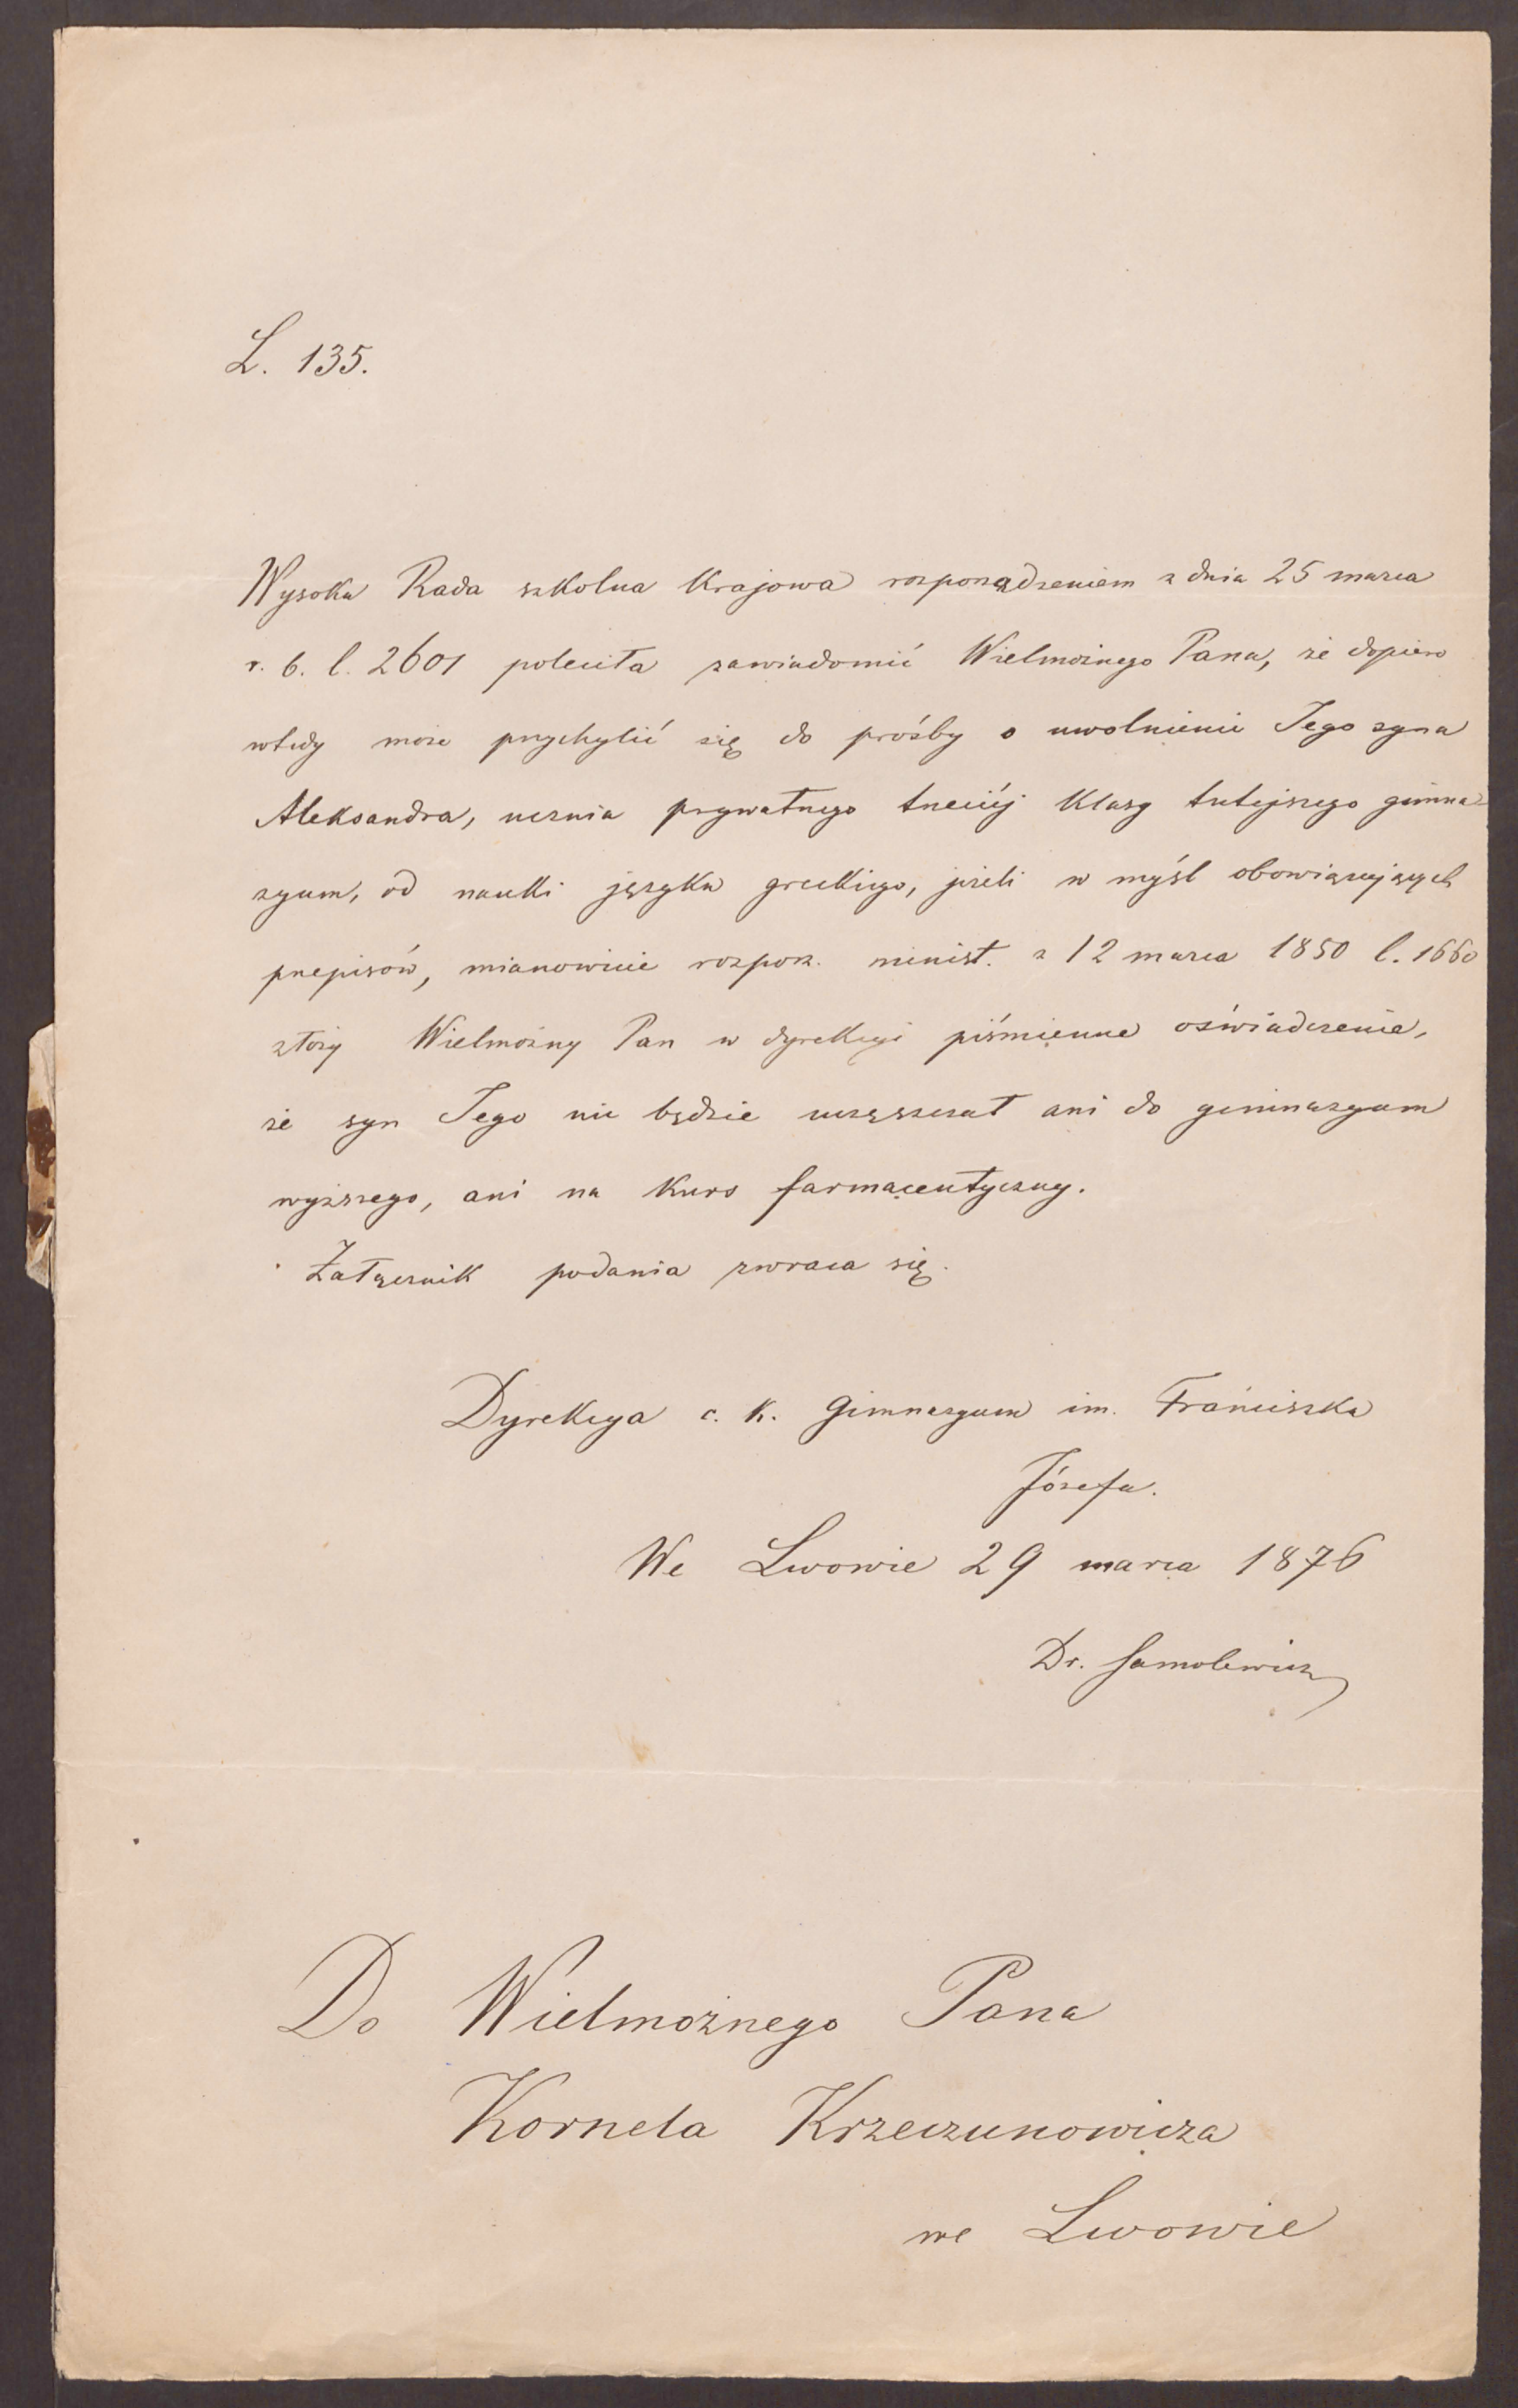 L. 135.
Wysoka Rada szkolna Krajowa rozporządzeniem z dnia 25 marca
r. b. l. 2601 poleciła zawiadomić Wielmożnego Pana, że dopiero
wtedy może przychylić się do prośby o uwolnienie Jego syna
Aleksandra, ucznia prywatnego trzeciéj klasy tutejszego gimna-
zyum, od nauki języka greckiego, jeżeli w myśl obowiązujących
przepisów, mianowicie rozporz. minist. z 12 marca 1850 l. 1660
złoży Wielmożny Pan w dyrekcyi piśmienne oświadczenie,
że syn Jego nie będzie uczęszczał ani do gimnazyum
wyższego, ani na kurs farmaceutyczny.
Załącznik podania zwraca się.
Dyrekcya c. k. Gimnazyum im. Franciszka
Józefa.
We Lwowie 29 marca 1876
Dr. Samolewicz
Do Wielmożnego Pana
Kornela Krzeczunowicza
we Lwowie